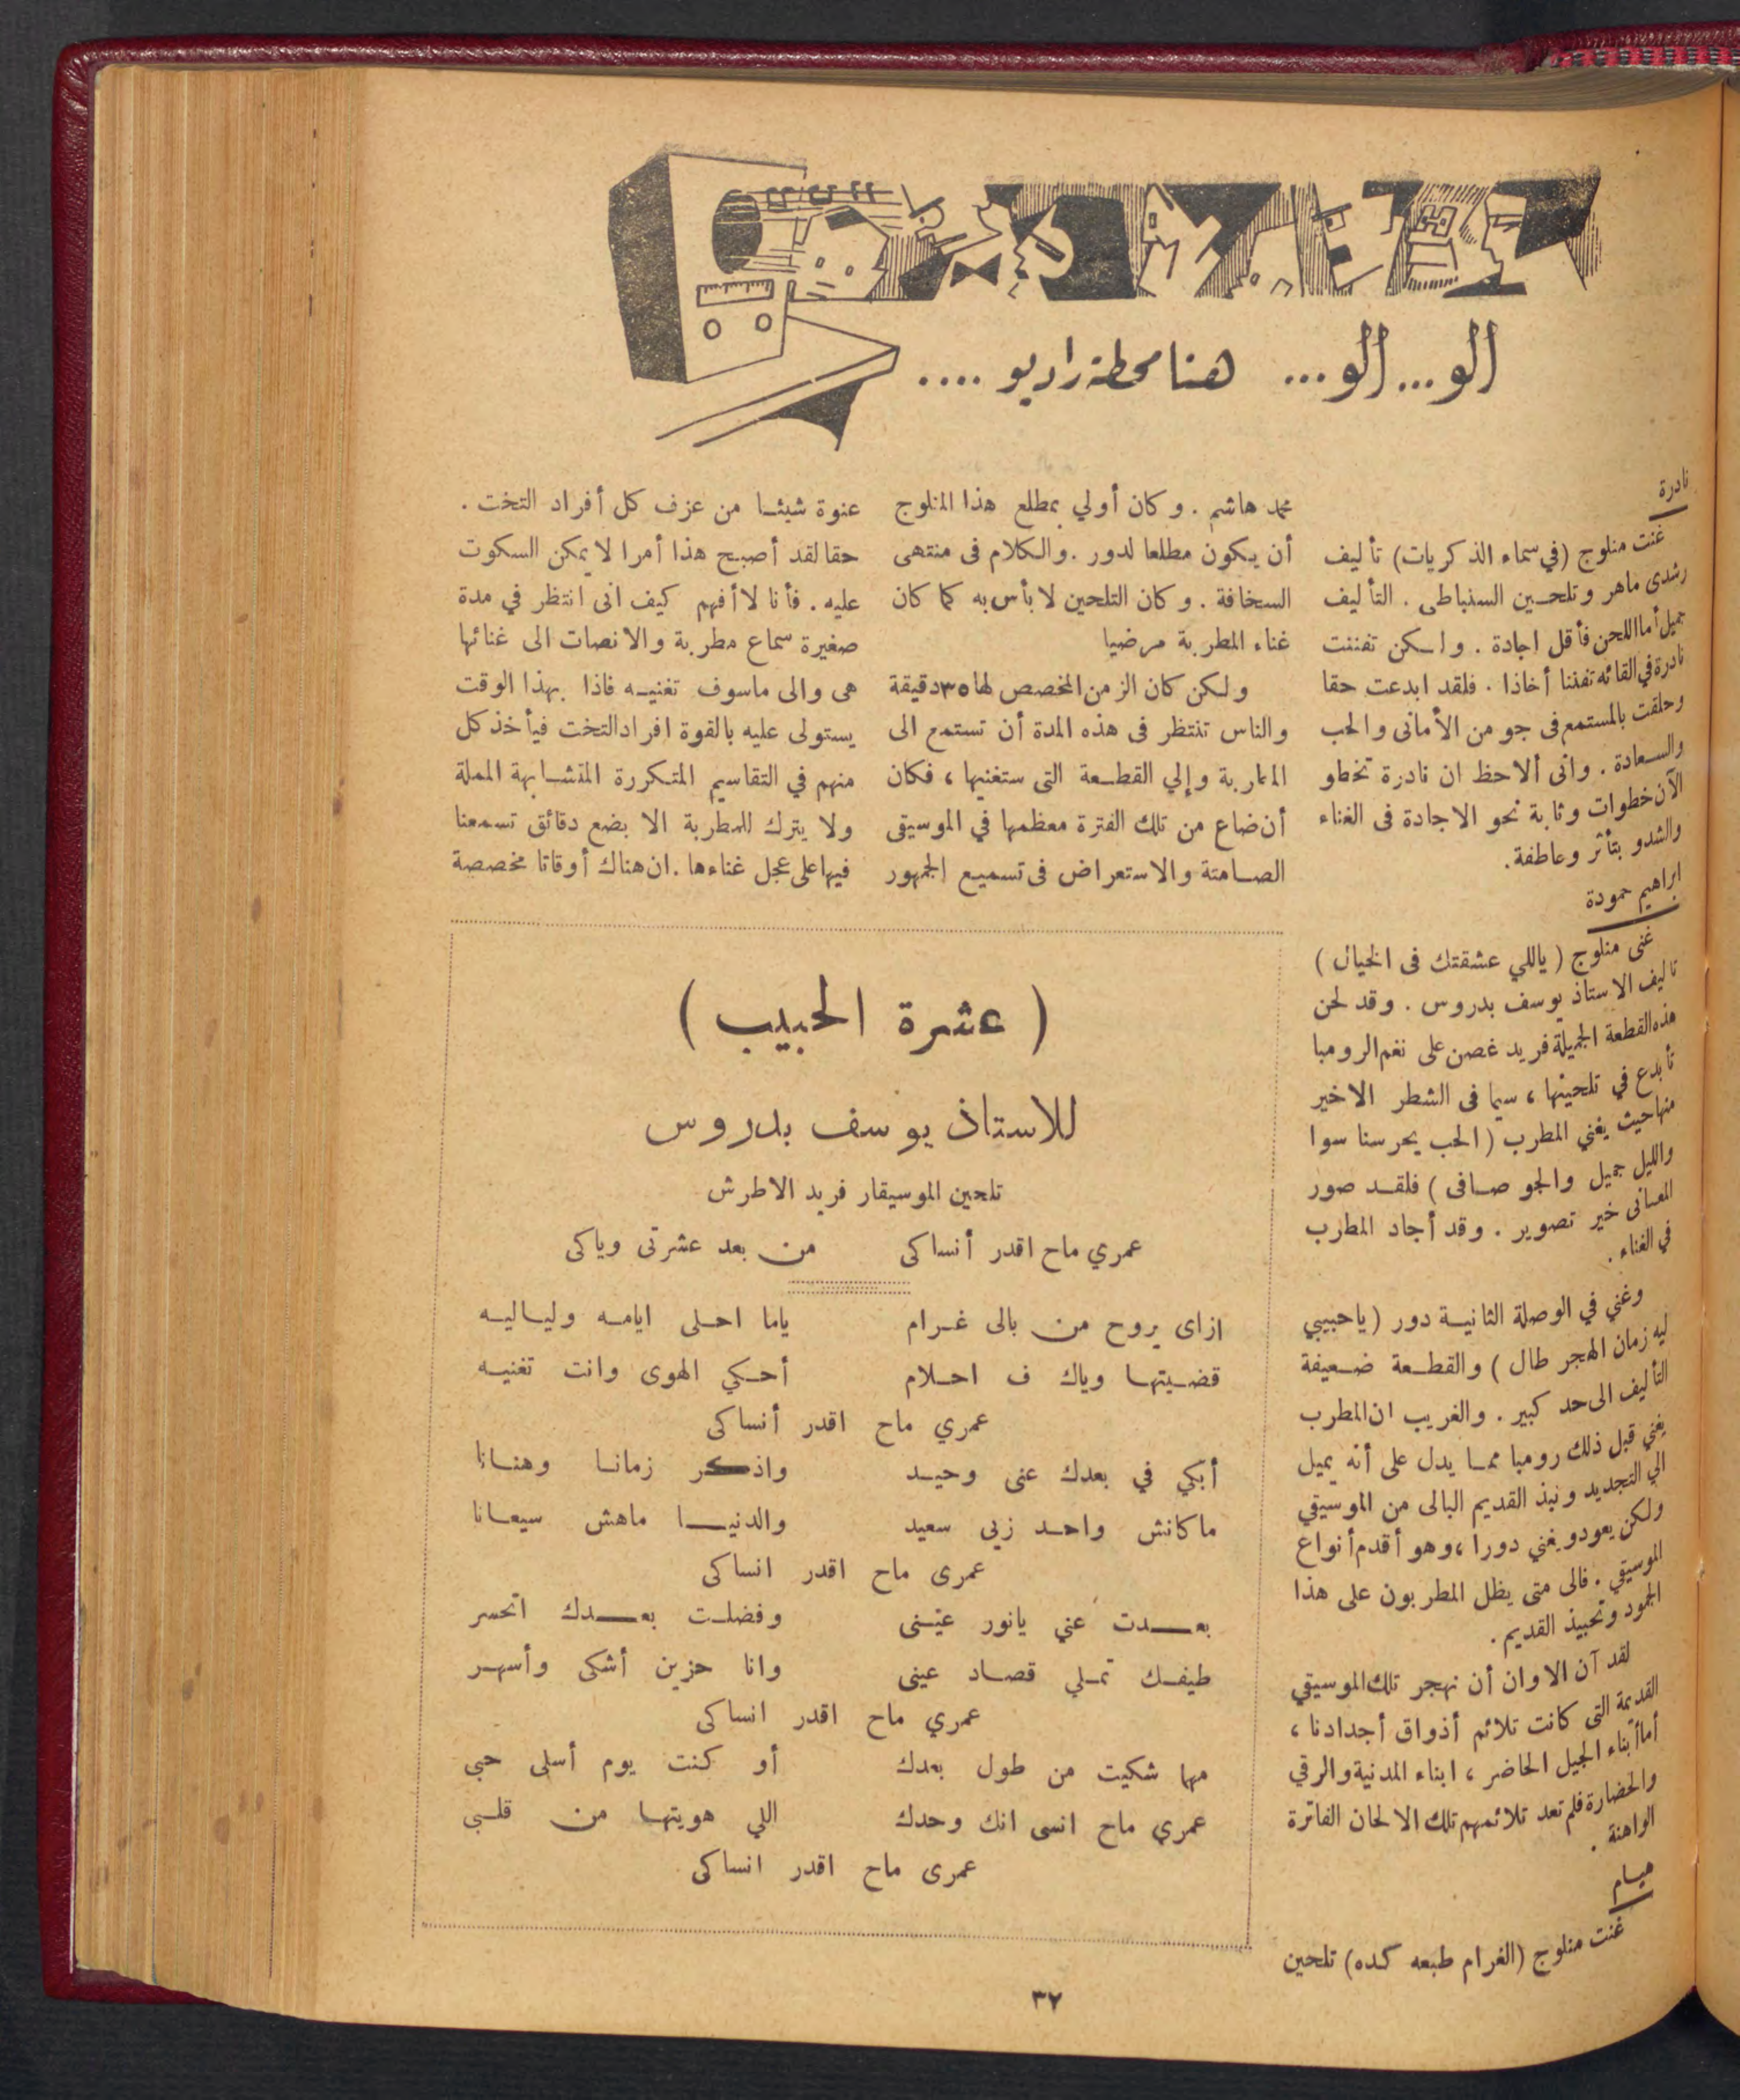 الو... الو... هنا محطة راديو ....
نادرة
غنت منلوج (في سماء الذكريات) تأليف
رشدى ماهر وتلحين السنباطى . التأليف
جميل أما اللحن فأقل اجادة . ولكن تفننت
نادرة في القائه تفننا أخاذا . فلقد ابدعت حقا
وحلقت بالمستمع فى جو من الأمانى والحب
والسعادة . وانى ألاحظ ان نادرة تخطو
الآن خطوات وثابة نحو الاجادة فى الغناء
والشدو بتأثر وعاطفة .
ابراهيم حمودة
غنى منلوج ( ياللي عشقتك فى الخيال )
تاليف الاستاذ يوسف بدروس . وقد لحن
هذه القطعة الجميلة فريد غصن على نغم الرومبا
تأبدع في تلحينها ، سيما فى الشطر الاخير
منها حيث يغني المطرب ( الحب يحرسنا سوا
والليل جميل والجو صافى ) فلقد صور
المعانى خير تصوير . وقد أجاد المطرب
في الغناء .
وغني في الوصلة الثانية دور ( ياحبيبي
ليه زمان الهجر طال ) والقطعة ضعيفة
التأليف الى حد كبير . والغريب ان المطرب
يغني قبل ذلك رومبا مما يدل على أنه يميل
الي التجديد ونبذ القديم البالى من الموسيقي
ولكن يعود ويغني دورا ، وهو أقدم أنواع
الموسيقي . فالى متى يظل المطربون على هذا
الجمود وتحبيذ القديم .
لقد آن الاوان أن نهجر تلك الموسيقي
القديمة التى كانت تلائم أذواق أجدادنا ،
أما أبناء الجيل الحاضر ، ابناء المدنية والرقي
والحضارة فلم تعد تلائمهم تلك الالحان الفاترة
الواهنة .
هيام
غنت منلوج (الغرام طبعه كده) تلحين
محمد هاشم . وكان أولي بمطلع هذا المنلوج
أن يكون مطلعا لدور . والكلام فى منتهى
السخافة . وكان التلحين لا بأس به كما كان
غناء المطربة مرضيا
ولكن كان الزمن المخصص لها ٣٥ دقيقة
والناس تنتظر فى هذه المدة أن تستمع الى
المطربة وإلي القطعة التى ستغنيها ، فكان
أن ضاع من تلك الفترة معظمها في الموسيقى
الصامتة والاستعراض فى تسميع الجمهور
عنوة شيئا من عزف كل أفراد التخت .
حقا لقد أصبح هذا أمرا لا يمكن السكوت
عليه . فأنا لا أفهم كيف انى انتظر في مدة
صغيرة سماع مطربة والانصات الى غنائها
هى والى ماسوف تغنيه فاذا بهذا الوقت
يستولى عليه بالقوة افراد التخت فيأخذ كل
منهم في التقاسيم المتكررة المتشابهة المملة
ولا يترك للمطربة الا بضع دقائق تسمعنا
فيها على عجل غناءها . ان هناك أوقاتا مخصصة
( عشرة الحبيب )
للاستاذ يوسف بدروس
تلحين الموسيقار فريد الاطرش
عمري ماح اقدر أنساكى من بعد عشرتى وياكى
ازاى يروح من بالى غرام ياما احلى ايامه ولياليه
قضيتها وياك ف احلام أحكي الهوى وانت تغنيه
عمري ماح اقدر أنساكى
أبكي في بعدك عنى وحيد واذكر زمانا وهنانا
ماكانش واحد زيى سعيد والدنيا ماهش سيعانا
عمرى ماح اقدر انساكى
بعدت عني يانور عينى وفضلت بعدك اتحسر
طيفك تملي قصاد عينى وانا حزين أشكى وأسهر
عمري ماح اقدر انساكى
مهما شكيت من طول بعدك أو كنت يوم أسلى حبى
عمري ماح انسى انك وحدك اللي هويتها من قلبى
عمرى ماح اقدر انساكى
٣٧